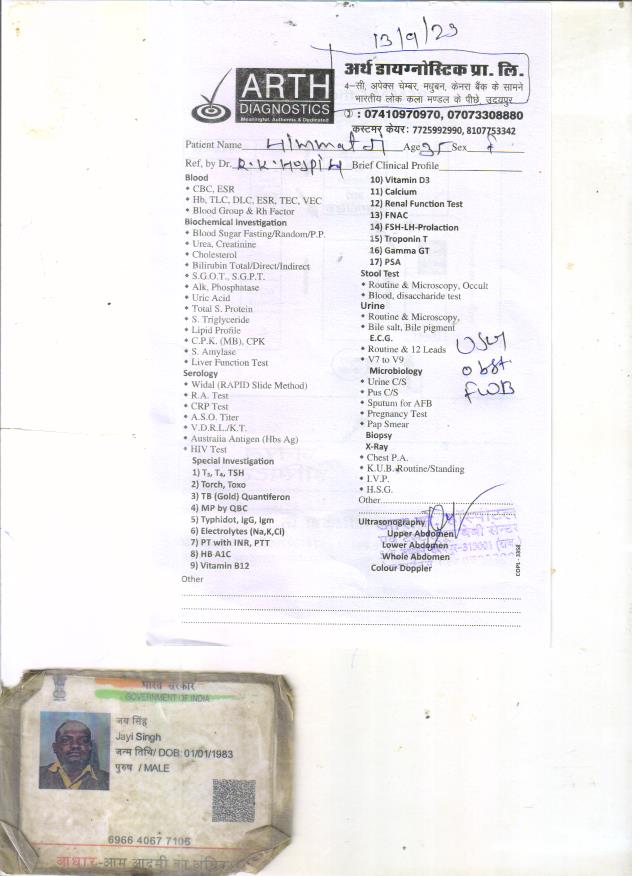 13/9/23
ARTH
DIAGNOSTICS
Meaningful, Authentic & Dedicated
अर्थ डायग्नोस्टिक प्रा. लि.
4-सी, अपेक्स चेम्बर, मधुबन, केनरा बैंक के सामने
भारतीय लोक कला मण्डल के पीछे, उदयपुर
: 07410970970, 07073308880
कस्टमर केयर: 7725992990, 8107753342
Patient Name Himmat Age 35 Sex f
Ref, by Dr. R.K. Hospital Brief Clinical Profile
Blood
CBC, ESR
Hb, TLC, DLC, ESR, TEC, VEC
Blood Group & Rh Factor
Biochemical Investigation
Blood Sugar Fasting/Random/P.P.
Urea, Creatinine
Cholesterol
Bilirubin Total/Direct/Indirect
S.G.O.T., S.G.P.T.
Alk, Phosphatase
Uric Acid
Total S. Protein
S. Triglyceride
Lipid Profile
C.P.K. (MB), CPK
S. Amylase
Liver Function Test
Serology
Widal (RAPID Slide Method)
R.A. Test
CRP Test
A.S.O. Titer
V.D.R.L./K.T.
Australia Antigen (Hbs Ag)
HIV Test
Special Investigation
1) T3, T4, TSH
2) Torch, Toxo
3) TB (Gold) Quantiferon
4) MP by QBC
5) Typhidot, IgG, Igm
6) Electrolytes (Na,K,Cl)
7) PT with INR, PTT
8) HB A1C
9) Vitamin B12
Other
10) Vitamin D3
11) Calcium
12) Renal Function Test
13) FNAC
14) FSH-LH-Prolaction
15) Troponin T
16) Gamma GT
17) PSA
Stool Test
Routine & Microscopy, Occult
Blood, disaccharide test
Urine
Routine & Microscopy,
Bile salt, Bile pigment
E.C.G.
Routine & 12 Leads
V7 to V9
Microbiology
Urine C/S
Pus C/S
Sputum for AFB
Pregnancy Test
Pap Smear
Biopsy
X-Ray
Chest P.A.
K.U.B. Routine/Standing
I.V.P.
H.S.G.
Other
USG
obst.
FWB
Ultrasonography
Upper Abdomen
Lower Abdomen
Whole Abdomen
Colour Doppler
बेबी सेन्टर
313001 (राज.)
COPL - 3358
भारत सरकार
GOVERNMENT OF INDIA
जय सिंह
Jayi Singh
जन्म तिथि/ DOB: 01/01/1983
पुरुष / MALE
6966 4067 7106
आधार-आम आदमी का अधिकार